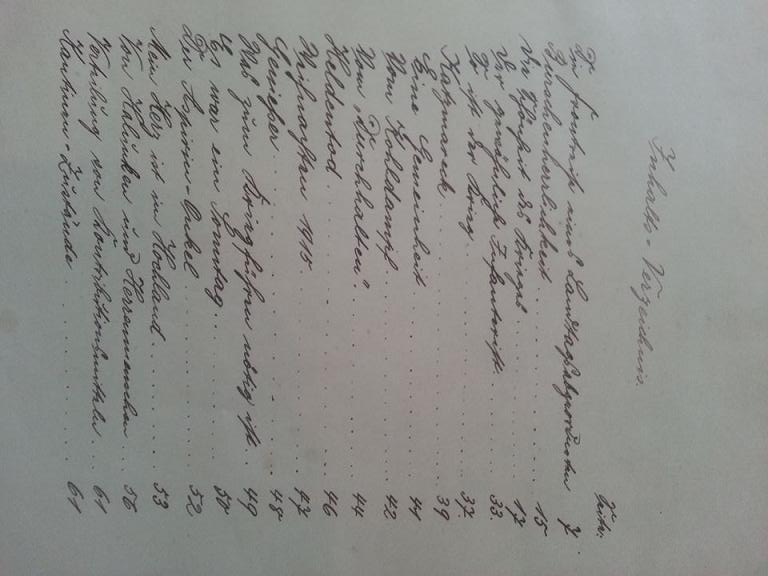 Inhalts-Verzeichnis.
Seite.
Die Frontreise eines Landtagsabgeordneten 7.
Burschenherrlichkeit 15
Die Torheit des Krieges 17
Der gewöhnliche Infanterist 33.
Es ist der Krieg 37.
Katzmarek 39
Eine Gemeinheit 41
Vom Kohldampf 42
Vom „Durchhalten“ 44
Heldentod 46
Weihnachten 1915. 47
Genießer 48
Was zum Kriegführen nötig ist 49
Es war ein Sonntag 50
Der Aspirin-Onkel 52
Mein Herz ist im Hochland 53
Von Halunken und Herrenmenschen 56
Verteilung von 61
Kantinen-Zustände 61